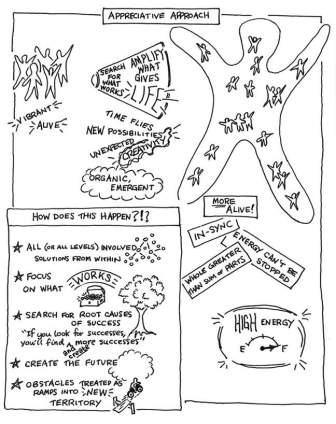 APPRECIATIVE APPROACH
VIBRANT
ALIVE
SEARCH
FOR
WHAT
WORKS
AMPLIFY
WHAT
GIVES
LIFE
TIME FLIES
NEW POSSIBILITIES
UNEXPECTED
CREATIVITY
ORGANIC,
EMERGENT
MORE
ALIVE!
IN-SYNC
ENERGY CAN'T BE
STOPPED
WHOLE GREATER
THAN SUM OF PARTS
HIGH ENERGY
E F
HOW DOES THIS HAPPEN?!?
ALL (OR ALL LEVELS) INVOLVED
SOLUTIONS FROM WITHIN
FOCUS
ON WHAT WORKS
SEARCH FOR ROOT CAUSES
OF SUCCESS
"IF you look for successes,
you'll find and create more successes"
CREATE THE FUTURE
OBSTACLES TREATED AS
RAMPS INTO NEW
TERRITORY